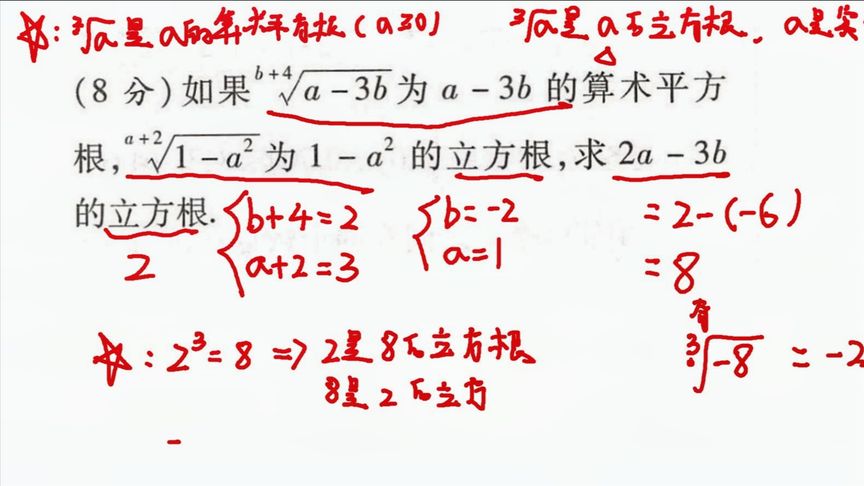 ☆: ²√a是a的算术平方根(a≥0) ³√a是a的立方根, a是实
(8 分)如果 ᵇ⁺⁴√(a-3b) 为 a-3b 的算术平方
根, ᵃ⁺²√(1-a²) 为 1-a² 的立方根,求 2a-3b
的立方根.
b+4=2 b=-2 =2-(-6)
2 a+2=3 a=1 =8
☆: 2³=8 => 2是8的立方根 ³√-8 = -2
8是2的立方
-